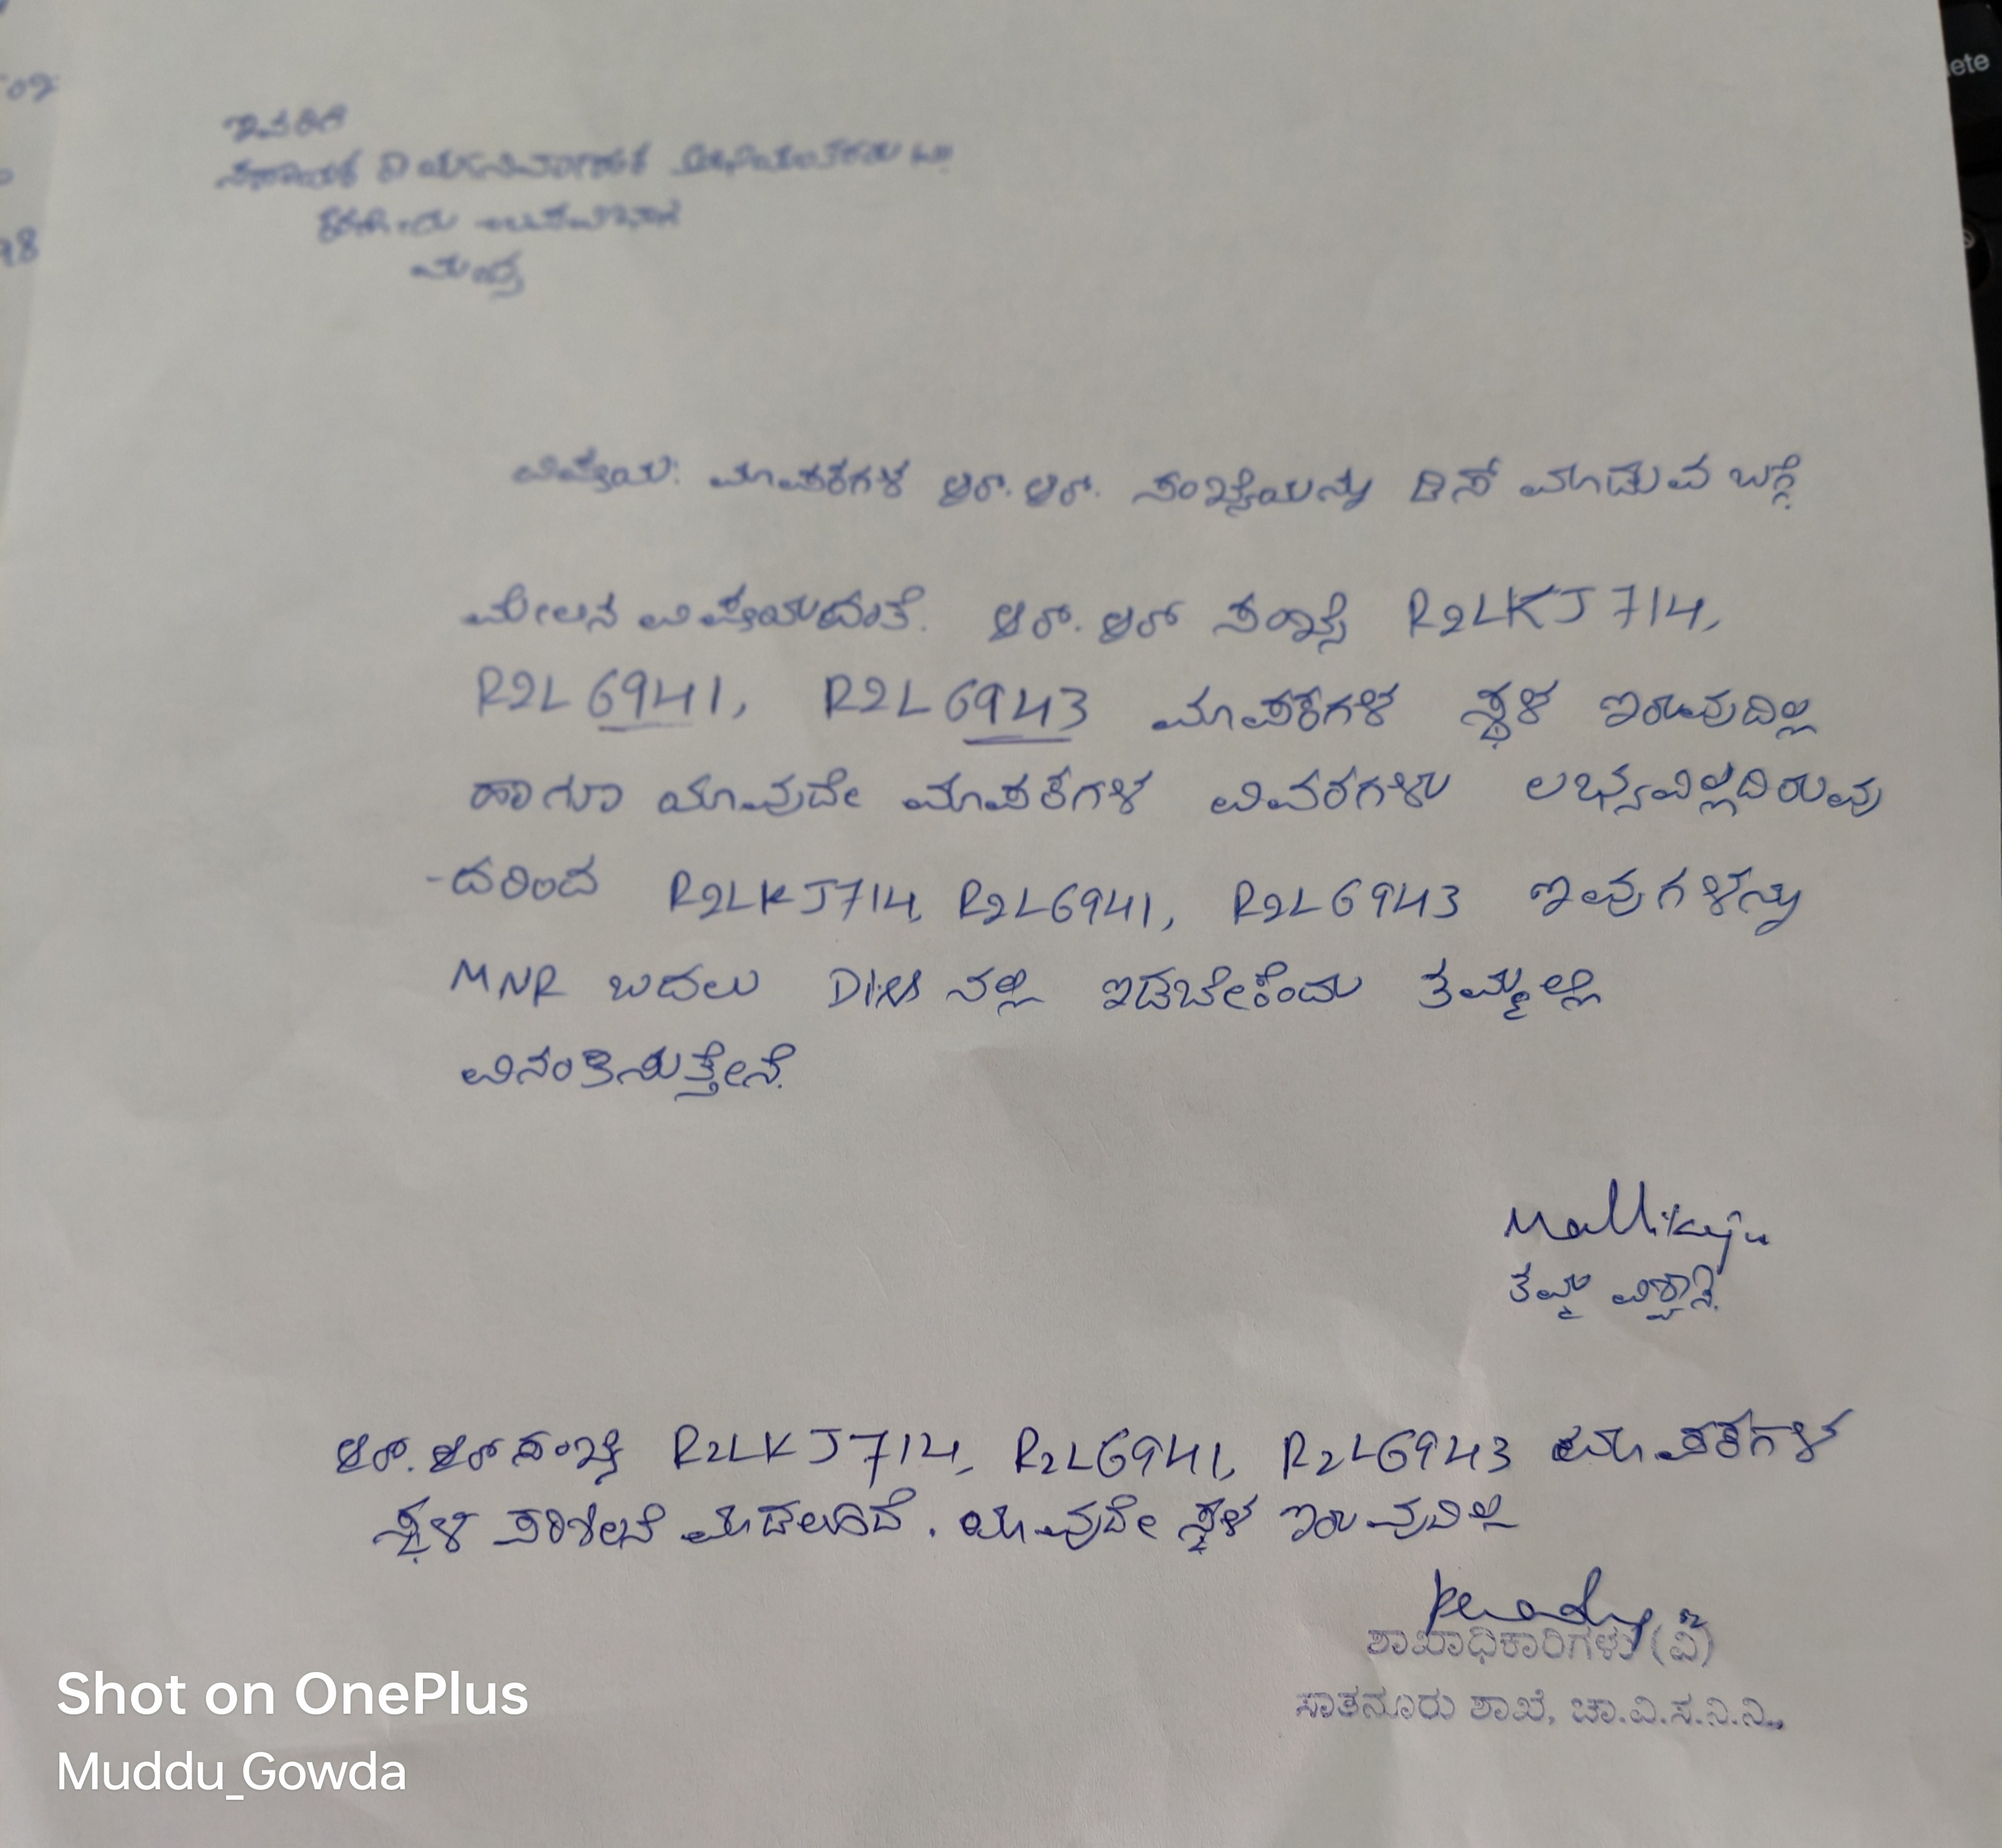 ಇವರಿಗೆ
ಸಹಾಯಕ ಕಾರ್ಯನಿರ್ವಾಹಕ
ಉಪವಿಭಾಗ
ಮಂಡ್ಯ
ವಿಷಯ: ಮಾಪಕಗಳ ಆರ್.ಆರ್. ಸಂಖ್ಯೆಯನ್ನು ಡಿಸ್ ಮಾಡುವ ಬಗ್ಗೆ
ಮೇಲಿನ ವಿಷಯದಂತೆ. ಆರ್.ಆರ್ ಸಂಖ್ಯೆ R2LKJ714,
R2L6941, R2L6943 ಮಾಪಕಗಳ ಸ್ಥಳ ಇರುವುದಿಲ್ಲ
ಹಾಗೂ ಯಾವುದೇ ಮಾಪಕಗಳ ವಿವರಗಳು ಲಭ್ಯವಿಲ್ಲದಿರುವು
-ದರಿಂದ R2LKJ714, R2L6941, R2L6943 ಇವುಗಳನ್ನು
MNR ಬದಲು ನಲ್ಲಿ ಇಡಬೇಕೆಂದು ತಮ್ಮಲ್ಲಿ
ವಿನಂತಿಸುತ್ತೇನೆ.
ತಮ್ಮ ವಿಶ್ವಾಸಿ
ಆರ್.ಆರ್ ಸಂಖ್ಯೆ R2LKJ714, R2L6941, R2L6943 ಮಾಪಕಗಳ
ಸ್ಥಳ ಪರಿಶೀಲನೆ ಮಾಡಲಾಗಿದೆ. ಯಾವುದೇ ಸ್ಥಳ ಇರುವುದಿಲ್ಲ
ಶಾಖಾಧಿಕಾರಿಗಳು (ವಿ)
ಸಾತನೂರು ಶಾಖೆ, ಚಾ.ವಿ.ಸ.ನಿ.ನಿ.,
Shot on OnePlus
Muddu_Gowda